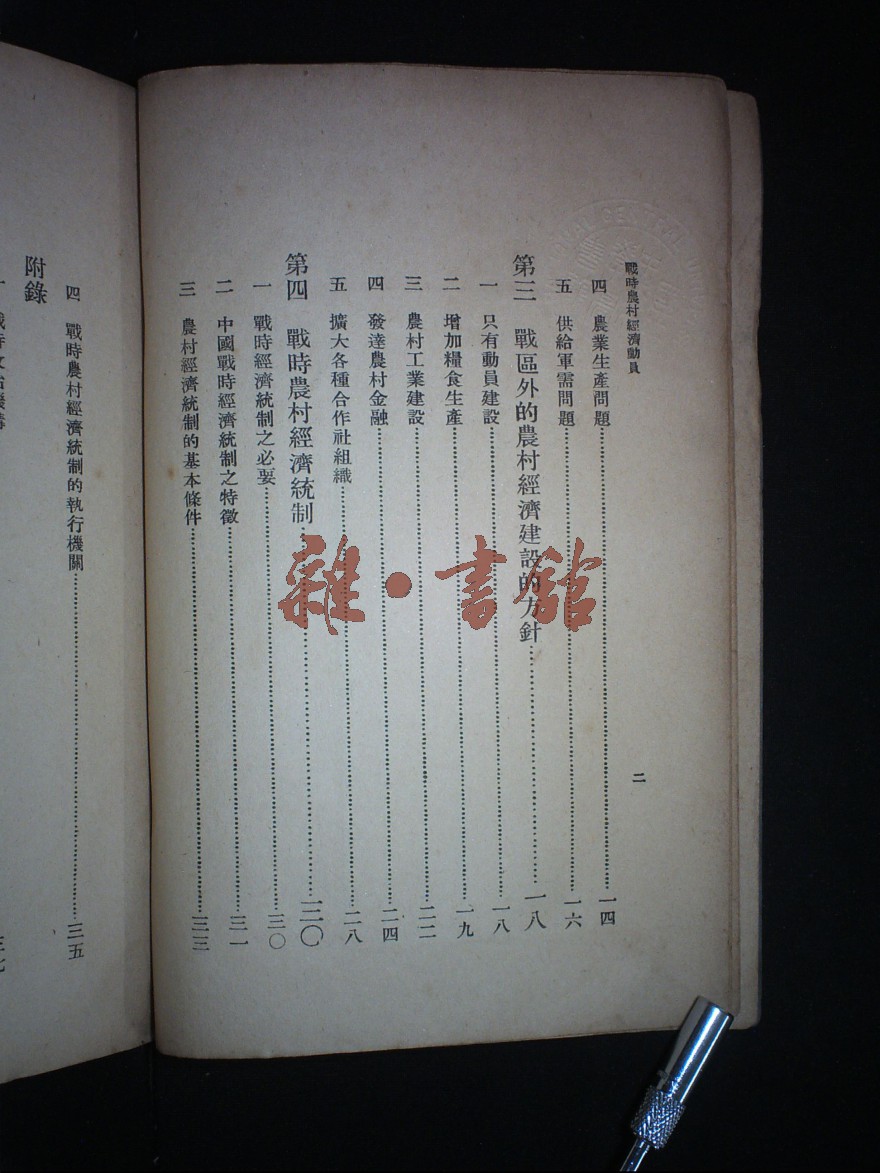 戰時農村經濟動員
二
四 農業生產問題……一四
五 供給軍需問題……一六
第三 戰區外的農村經濟建設的方針……一八
一 只有動員建設……一八
二 增加糧食生產……一九
三 農村工業建設……二二
四 發達農村金融……二四
五 擴大各種合作社組織……二八
第四 戰時農村經濟統制……三〇
一 戰時經濟統制之必要……三〇
二 中國戰時經濟統制之特徵……三一
三 農村經濟統制的基本條件……三三
四 戰時農村經濟統制的執行機關……三五
附錄
雜·書館